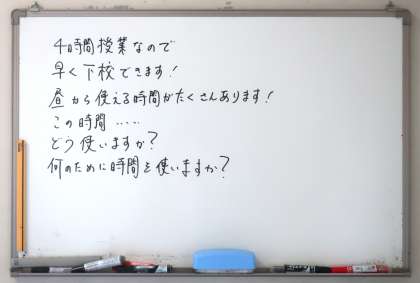 4時間授業なので
早く下校できます!
昼から使える時間がたくさんあります!
この時間……
どう使いますか?
何のために時間を使いますか?